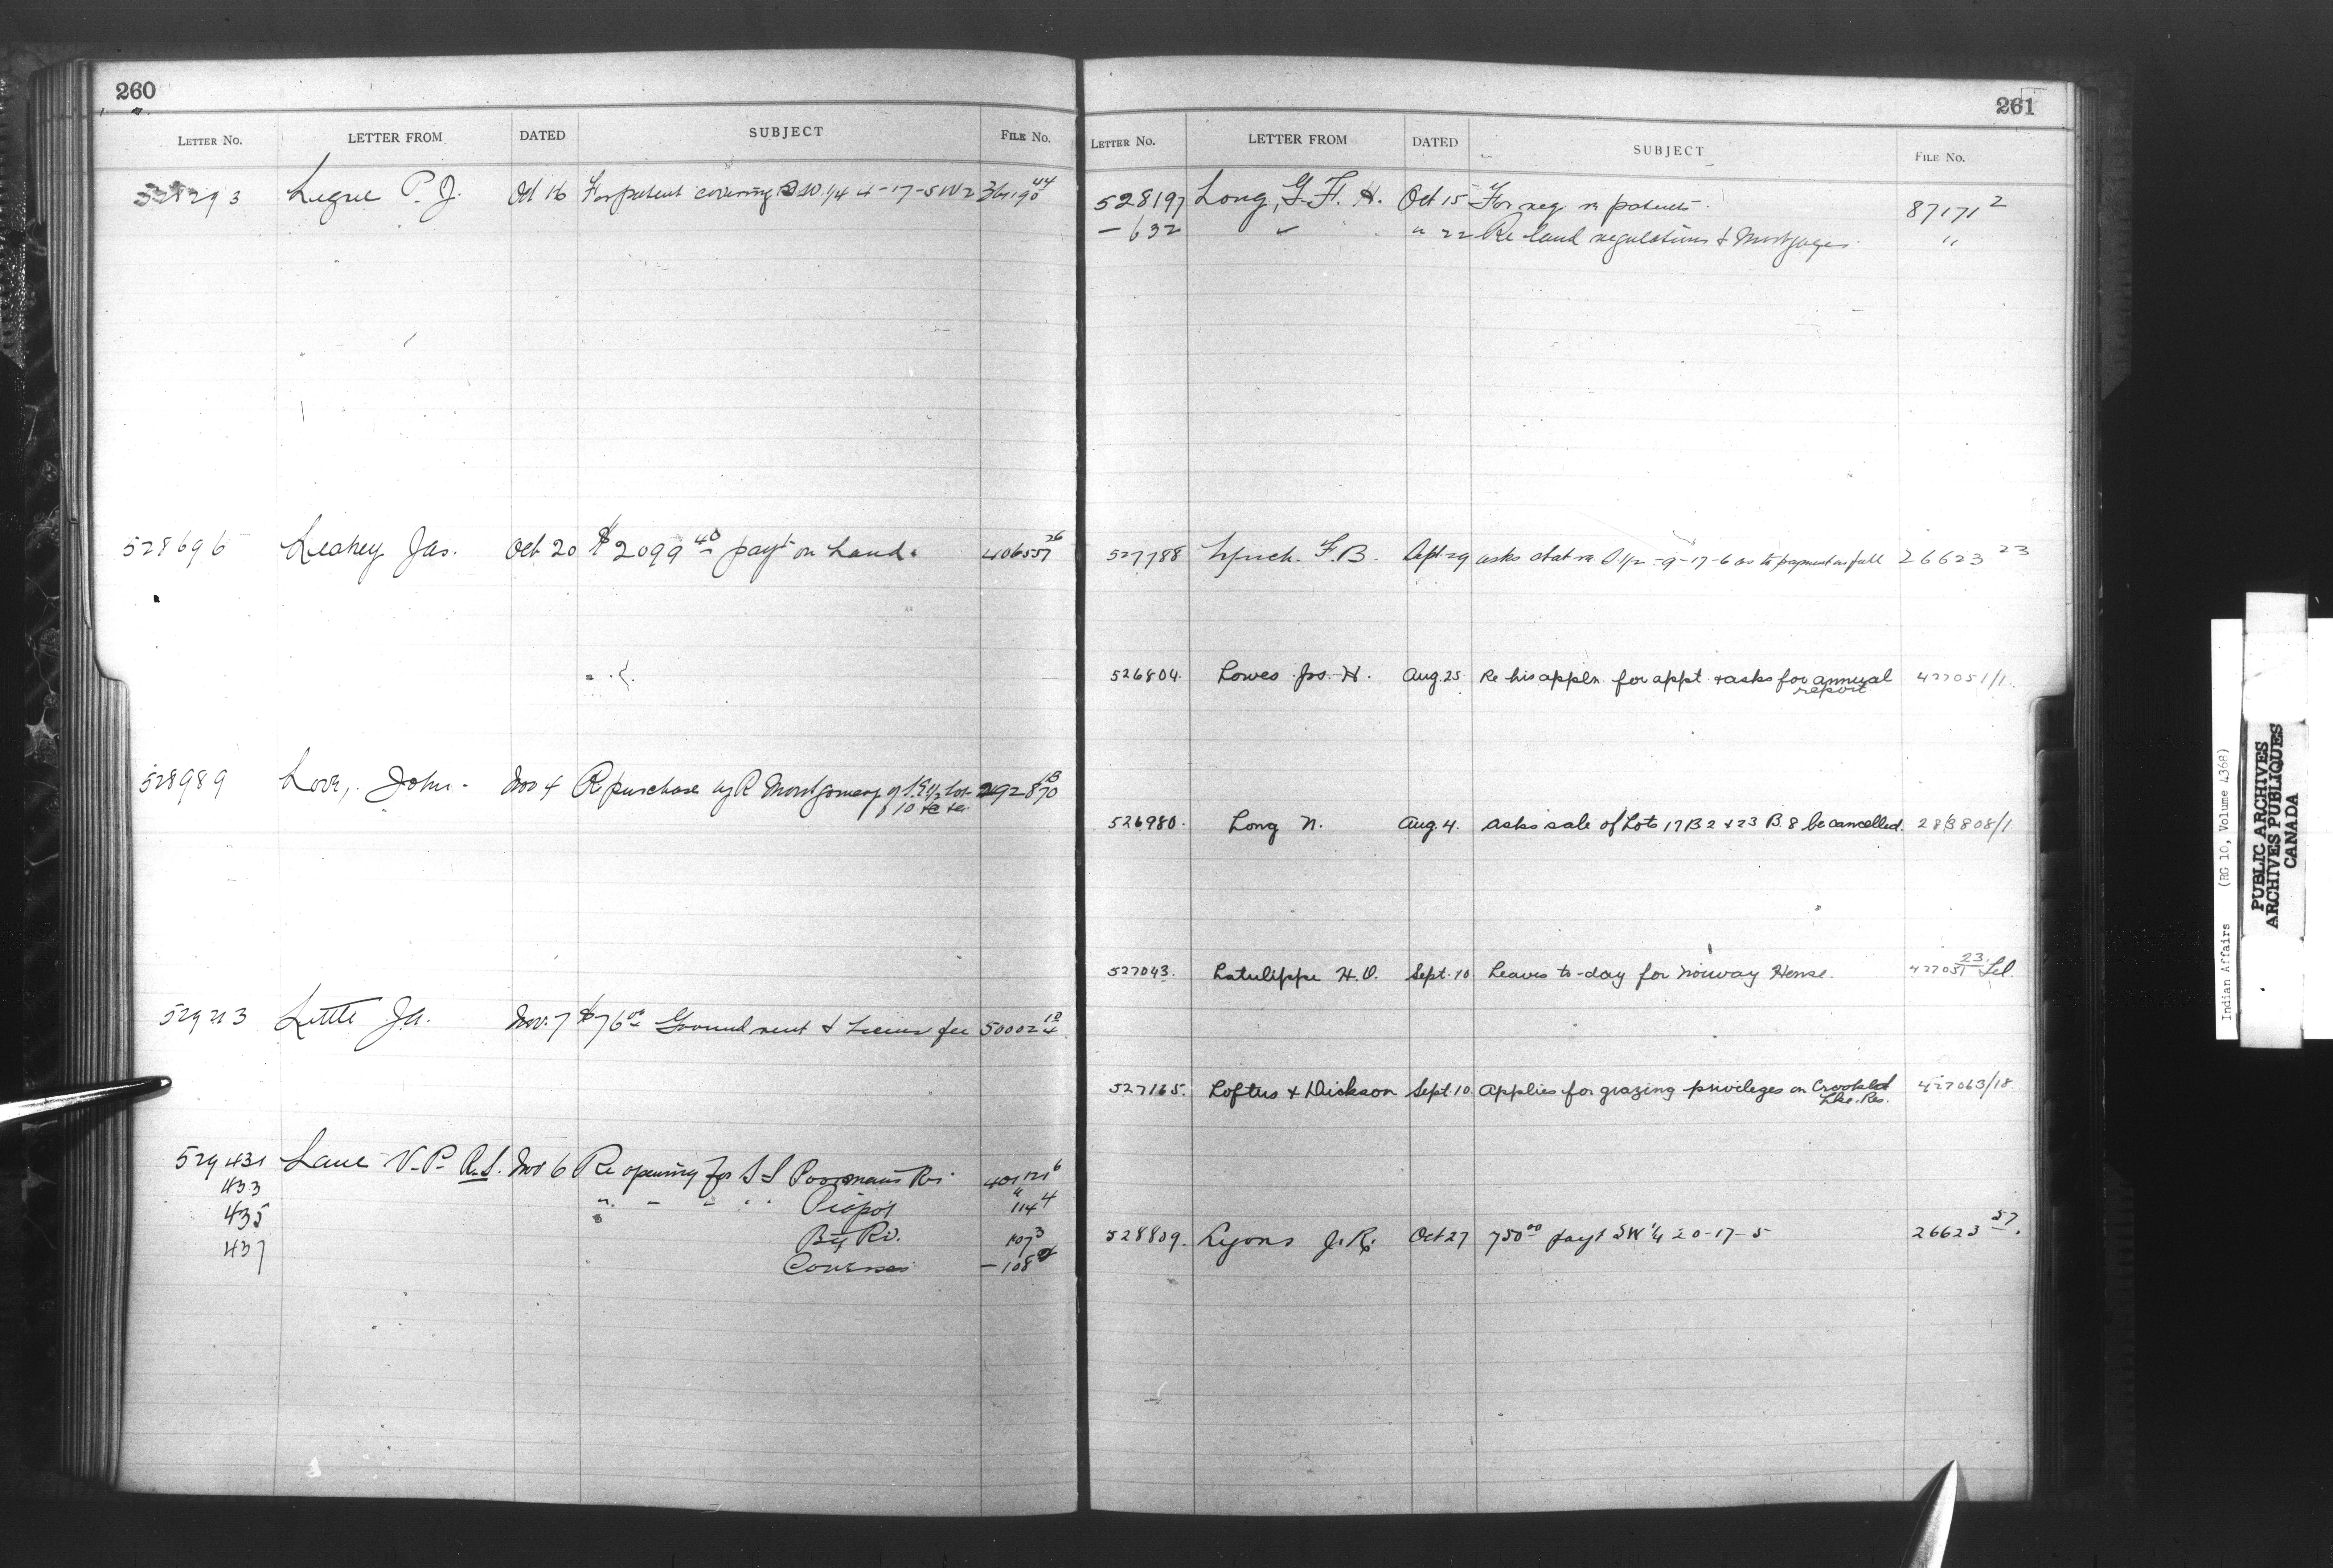 260
LETTER NO. LETTER FROM DATED SUBJECT FILE NO.
528293 Legue P. J. Oct 16 For patent covering SW 1/4 4-17-5 W2 36190 44
528696 Leahey Jas. Oct 20 $2099 40 payt on Land. 406557 26
528989 Love, John. Nov 4 Re purchase by R Montgomery of Lot 292870 18
10
Little Ja. Nov. 7 $76 00 Ground rent & License fee 50002
529431 Lane V. P. R.S. Nov 6 Re opening for S S Poormans Rs. 401121 6
433 Piapot 114 4
435 By Rd. 107 3
437 – 108
261
LETTER NO. LETTER FROM DATED SUBJECT FILE NO.
528197 Long, G. F. H. Oct 15 For reg re patents. 87171 2
– 632 " " 22 Re land regulations & Mortgages. "
527788 Lynch. F. B. asks stat re S 1/2 -9-17-6 as to payment in full 26623 23
526804. Lowes Jos. H. Aug. 25 Re his appln. for appt. & asks for annual 427051/1.
report
526980. Long N. Aug. 4. Asks sale of Lots 17 B 2 & 23 B. 8 be cancelled. 283808/1
527043. Latulippe H. O. Sept. 10 Leaves to-day for Norway House. 427051 23. Tel.
527165. Loftus & Dickson Sept. 10. Applies for grazing privileges on Crooked 427063/18.
Lke. Res.
528809. Lyons J. R. Oct 27 750 00 payt SW 1/4 20-17-5 26623 57.
Indian Affairs (RG 10, Volume 4368)
PUBLIC ARCHIVES
ARCHIVES PUBLIQUES
CANADA